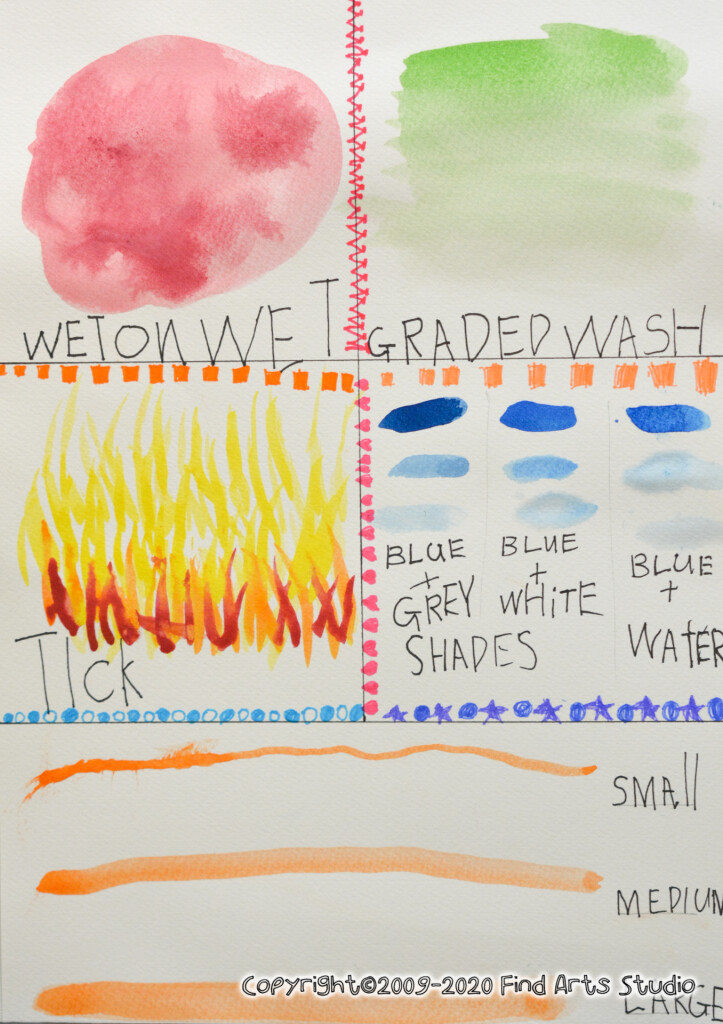 WET ON WET
GRADED WASH
TICK
BLUE
+
GREY
SHADES
BLUE
+
WHITE
BLUE
+
WATER
SMAll
MEDIUM
LARGE
Copyright©2009-2020 Find Arts Studio